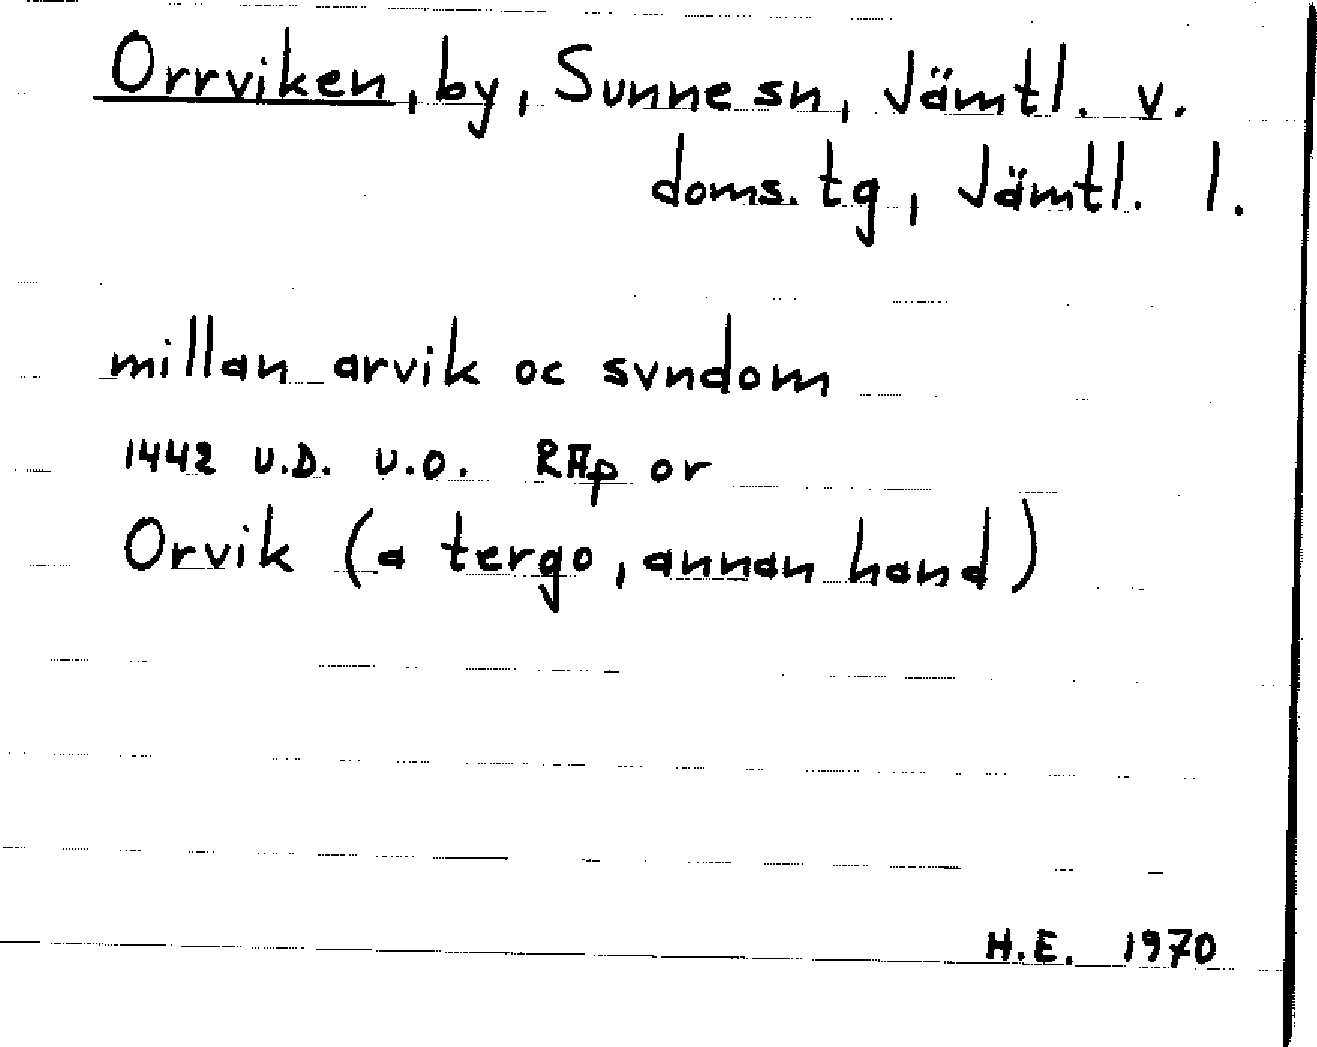 Orrviken, by, Sunne sn, Jämtl. v.
doms. tg, Jämtl. l.
millan arvik oc svndom
1442 U.D. U.O. RAp or
Orvik (a tergo, annan hand)
H.E. 1970